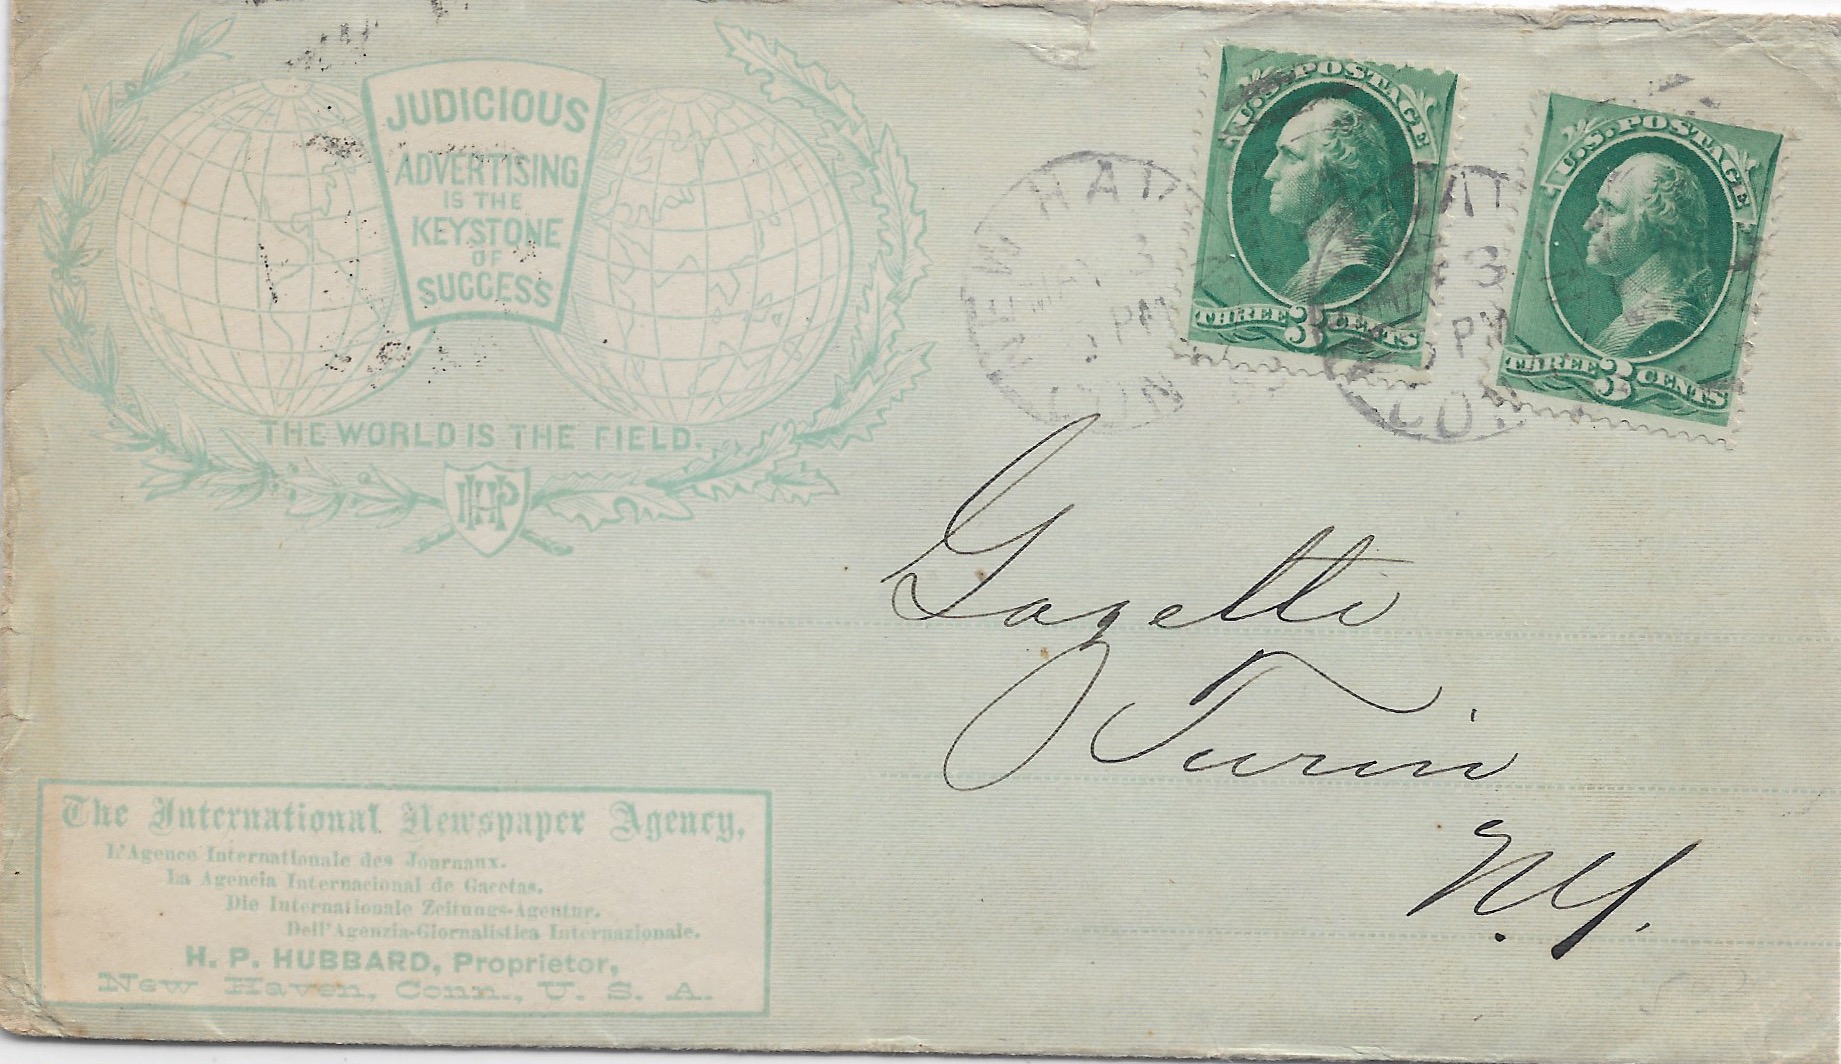 JUDICIOUS
ADVERTISING
IS THE
KEYSTONE
OF
SUCCESS
THE WORLD IS THE FIELD.
HHP
U.S. POSTAGE
THREE 3 CENTS
U.S. POSTAGE
THREE 3 CENTS
NEW HAV
3
PM
CONN
3
PM
CO
Gazette
Turin
N.Y.
The International Newspaper Agency,
L'Agence Internationale des Journaux.
La Agencia Internacional de Gacetas.
Die Internationale Zeitungs-Agentur.
Dell'Agenzia-Giornalistica Internazionale.
H. P. HUBBARD, Proprietor,
New Haven, Conn., U. S. A.